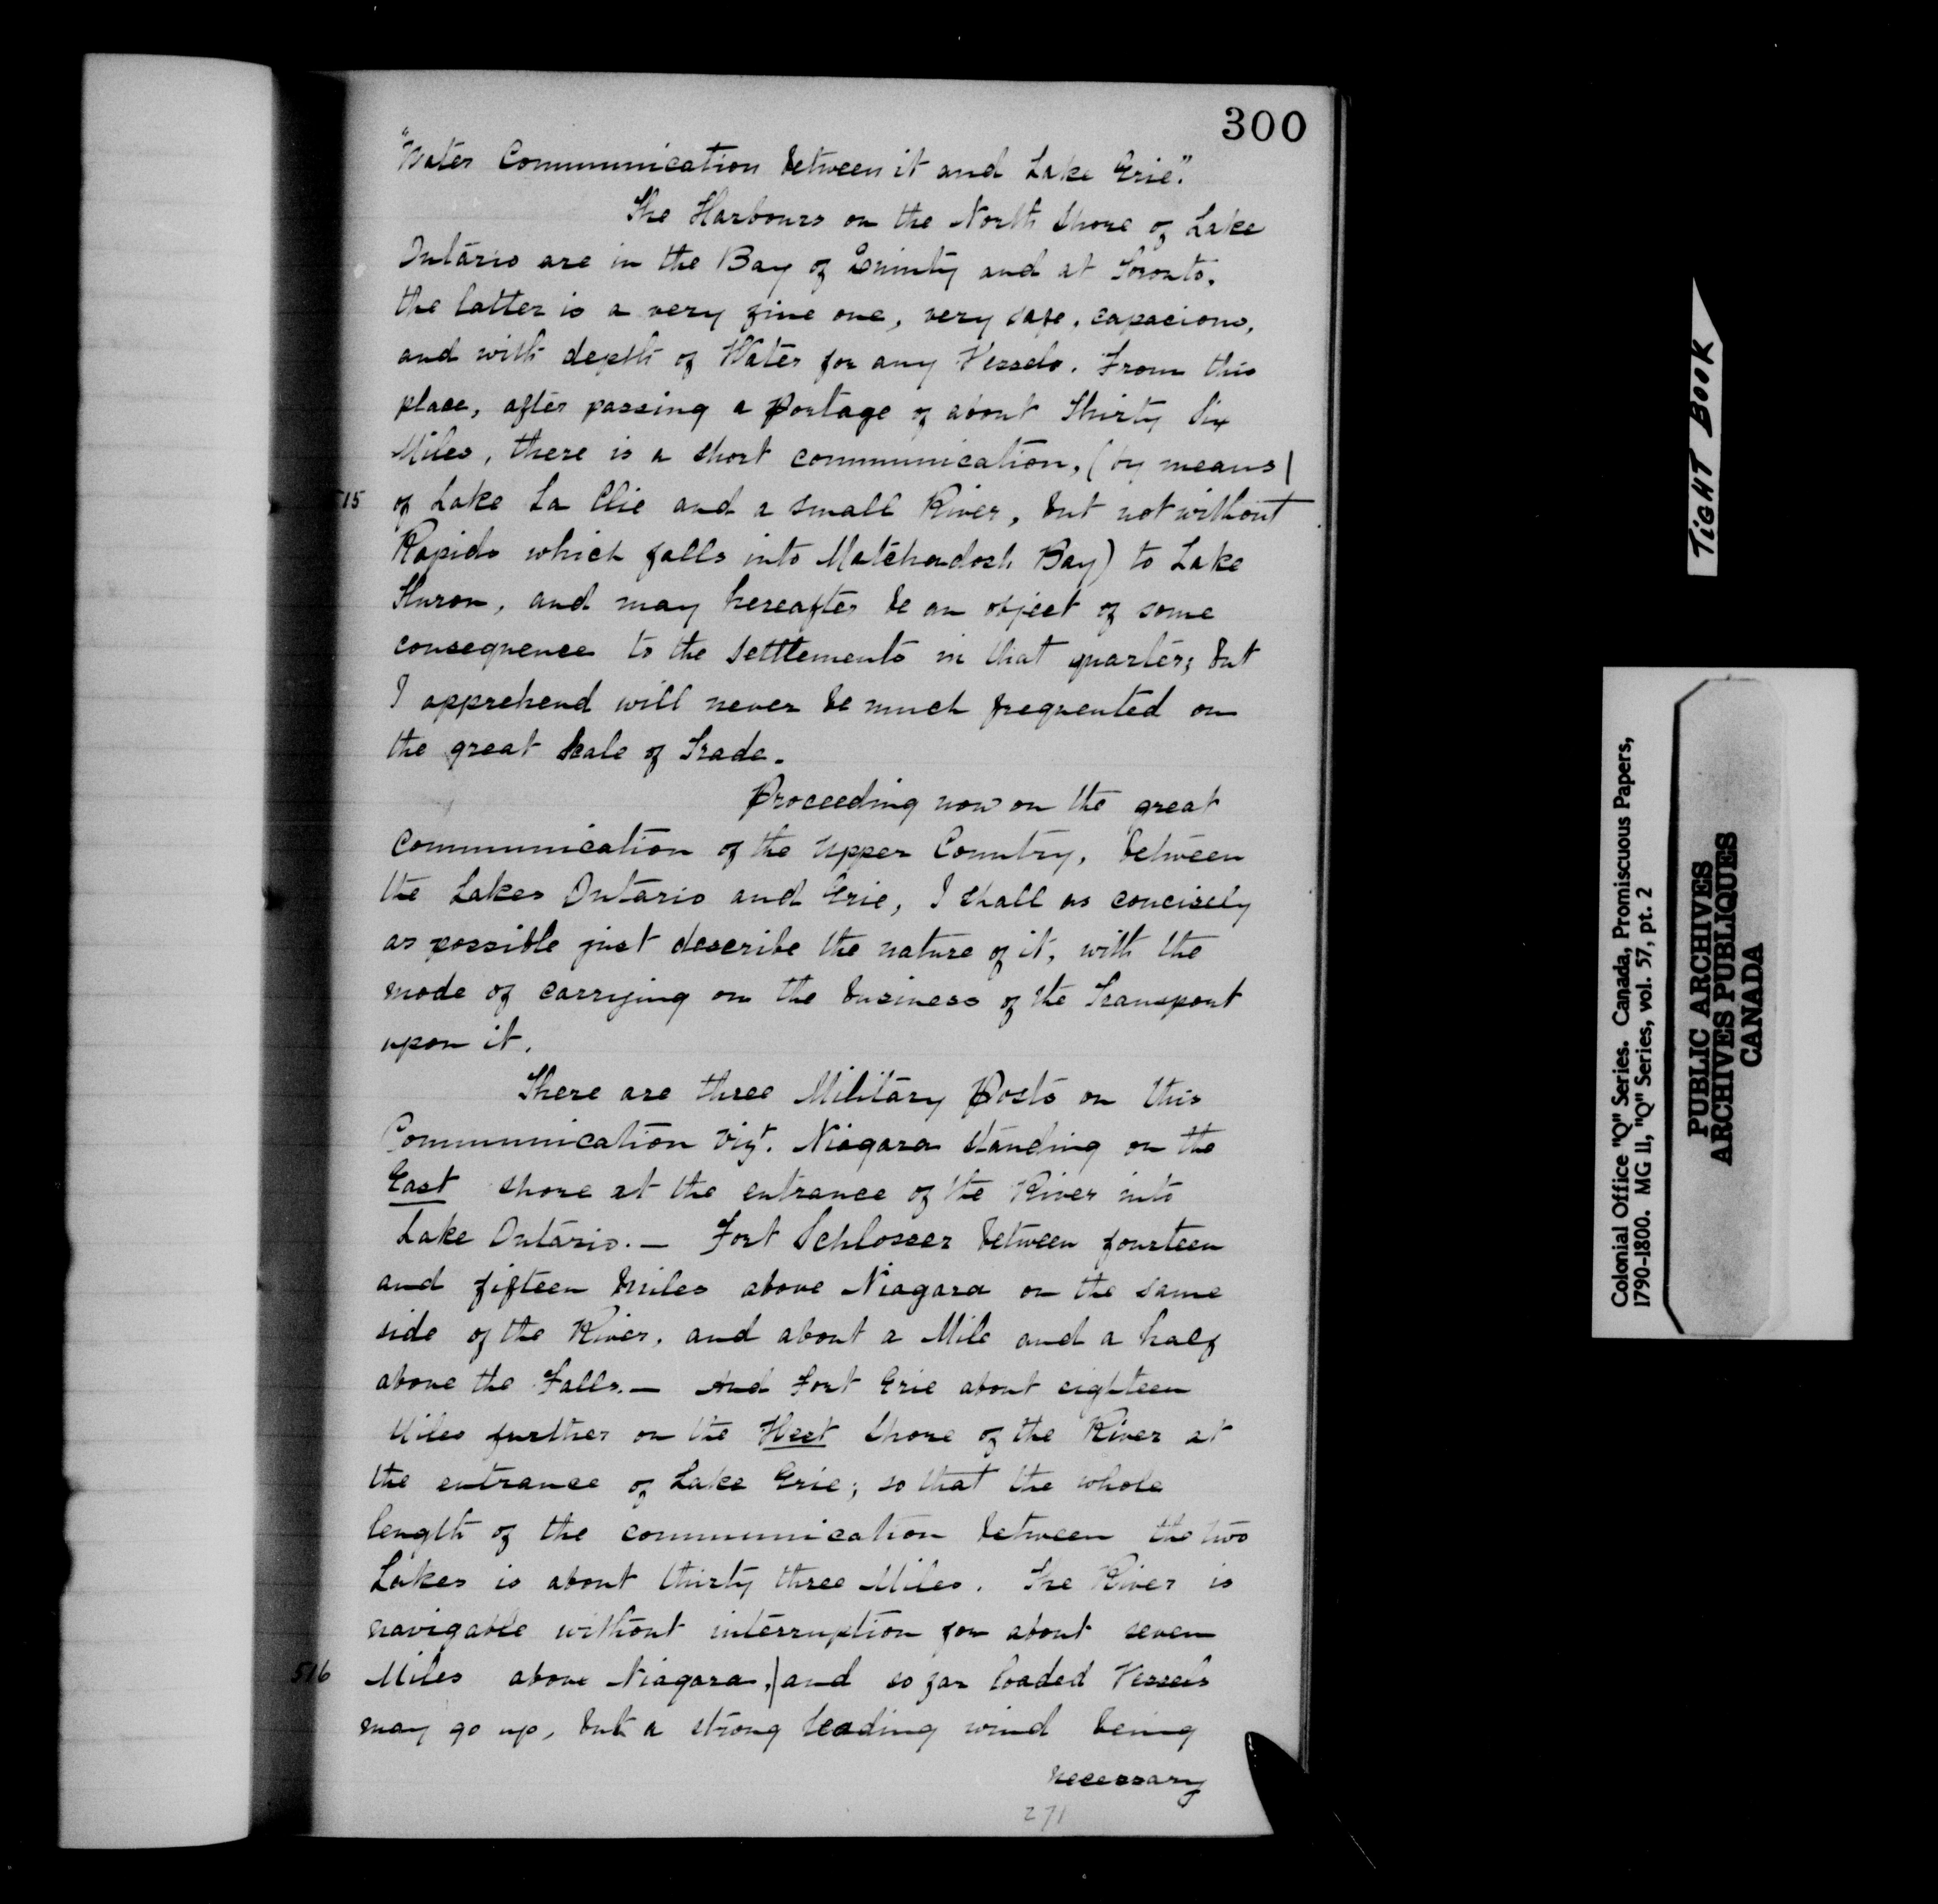 300
"Water Communication between it and Lake Erie."
The Harbours on the North Shore of Lake
Ontario are in the Bay of Quinty and at Toronto.
the latter is a very fine one, very safe, capacious,
and with depth of Water for any Vessels. From this
place, after passing a Portage of about Thirty Six
Miles, there is a short communication, (by means|
515 of Lake La Clie and a small River, but not without
Rapids which falls into Matchedosh Bay) to Lake
Huron, and may hereafter be an object of some
consequence to the settlements in that quarter; but
I apprehend will never be much frequented on
the great Scale of Trade.
Proceeding now on the great
Communication of the Upper Country, between
the Lakes Ontario and Erie, I shall as concisely
as possible just describe the nature of it, with the
mode of carrying on the business of the Transport
upon it.
There are three Military Posts on this
Communication Vizt. Niagara standing on the
East shore at the entrance of the River into
Lake Ontario. — Fort Schlosser between fourteen
and fifteen Miles above Niagara on the same
side of the River, and about a Mile and a half
above the Falls. — And Fort Erie about eighteen
Miles further on the West Shore of the River at
the entrance of Lake Erie; so that the whole
length of the communication between the two
Lakes is about thirty three Miles. The River is
navigable without interruption for about seven
516 Miles above Niagara,| and so far loaded Vessels
may go up, but a strong leading wind being
necessary
271
TIGHT BOOK
Colonial Office "Q" Series. Canada, Promiscuous Papers,
1790-1800. MG 11, "Q" Series, vol. 57, pt. 2
PUBLIC ARCHIVES
ARCHIVES PUBLIQUES
CANADA